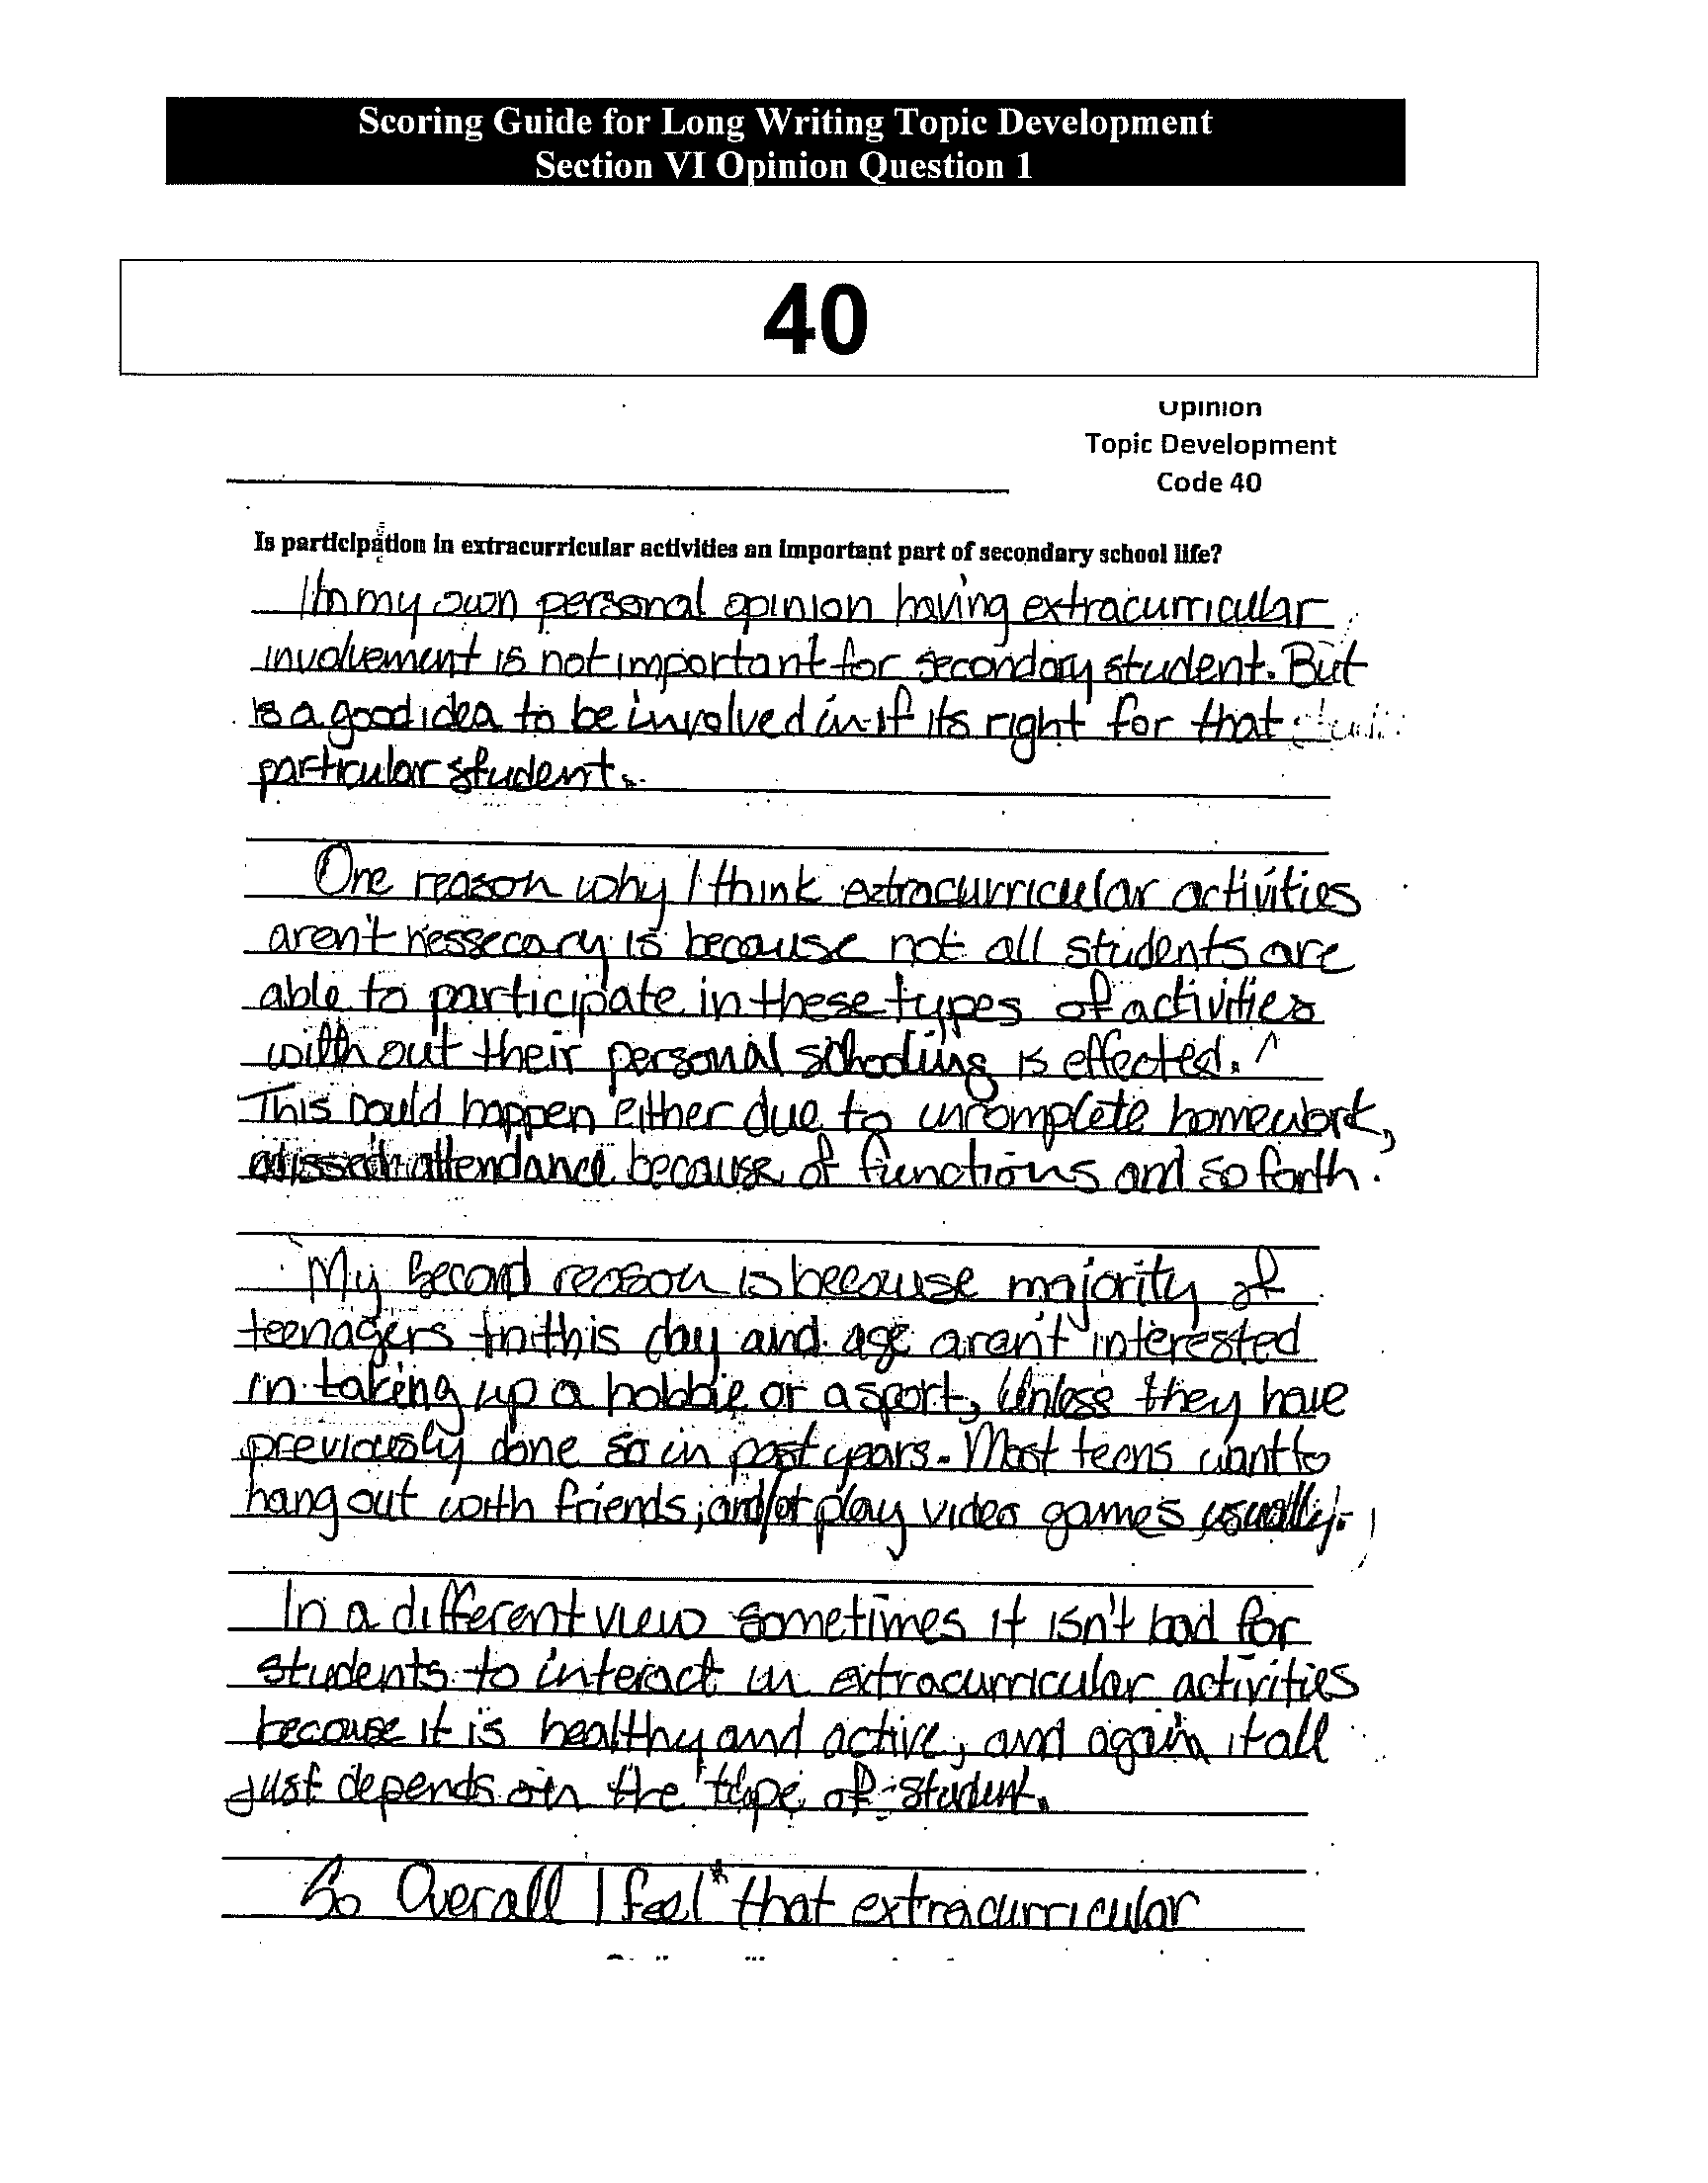 Scoring Guide for Long Writing Topic Development
Section VI Opinion Question 1
40
Opinion
Topic Development
Code 40
Is participation in extracurricular activities an important part of secondary school life?
In my own personal opinion having extracurricular
involvement is not important for secondary student. But
is a good idea to be involved in if its right for that
particular student.
One reason why I think extracurricular activities
aren't nessecary is because not all students are
able to participate in these types of activities
without their personal schooling is effected.
This could happen either due to uncomplete homework,
missed attendance because of functions and so forth.
My second reason is because majority of
teenagers in this day and age aren't interested
in taking up a hobbie or a sport, Unless they have
previously done so in past years. Most teens want to
hang out with friends, and/or play video games usually.
In a different view sometimes it isn't bad for
students to interact in extracurricular activities
because it is healthy and active, and again it all
just depends on the type of student.
So Overall I feel that extracurricular